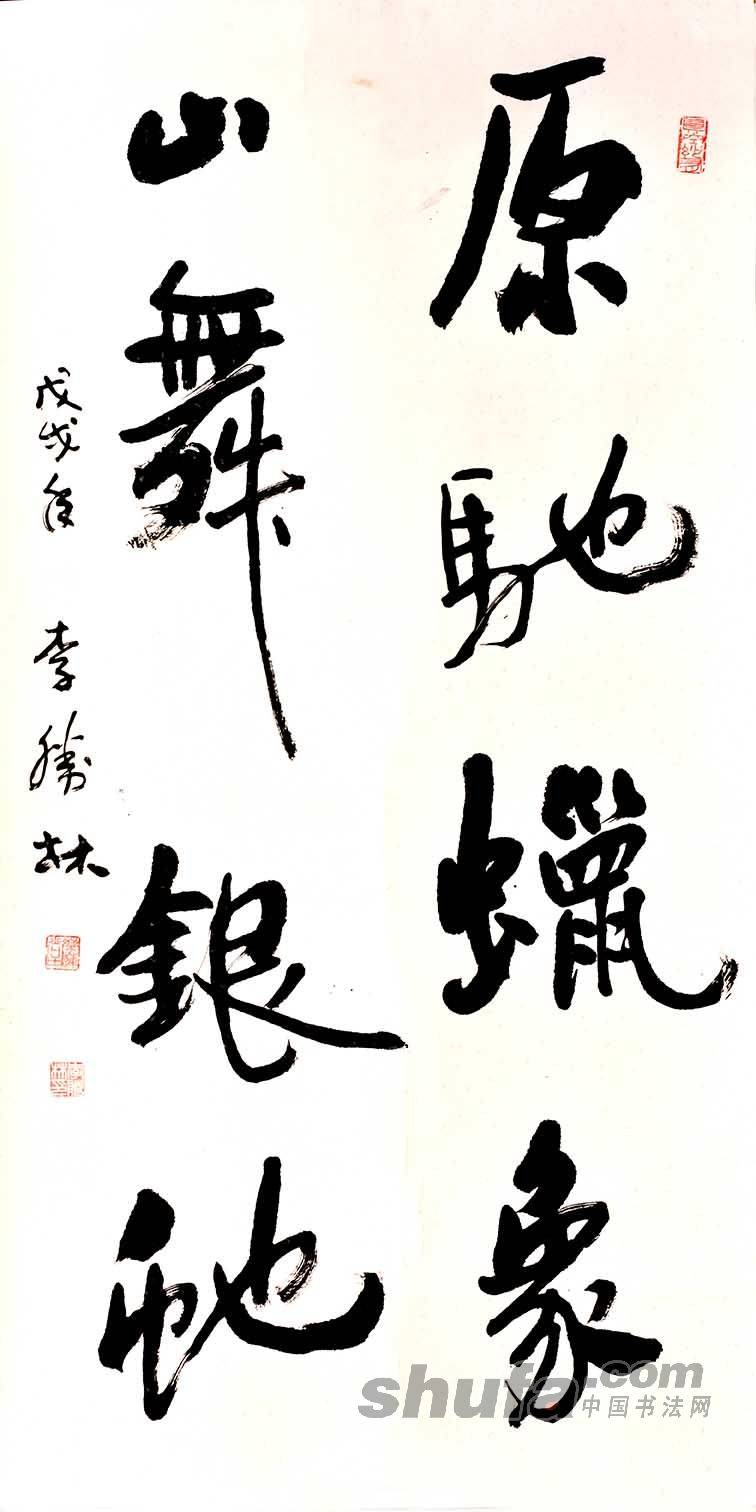 原馳蠟象
山舞銀虵
戊戌年 李勝林
shufa.com
中国书法网